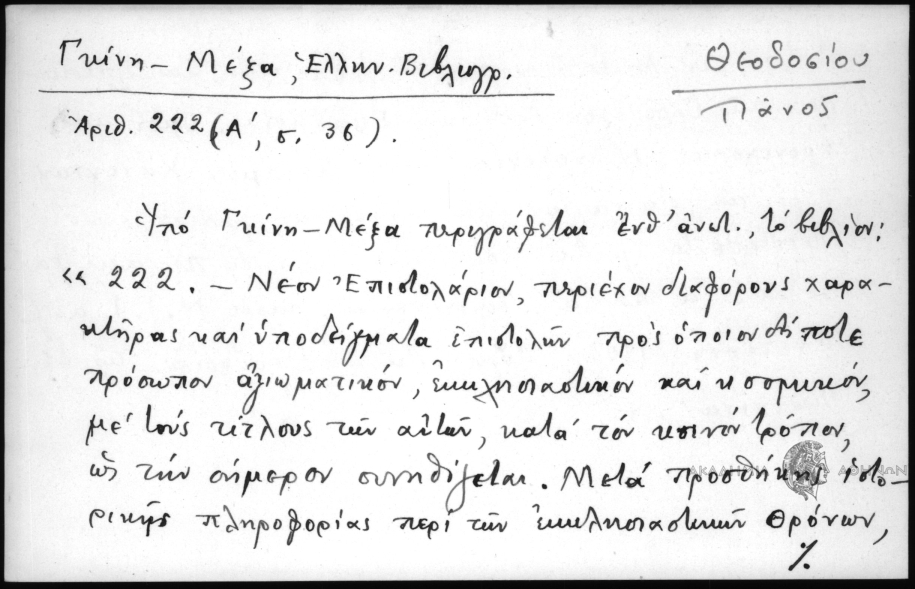 Γκίνη – Μέξα, Ἑλλην. Βιβλιογρ.
Θεοδοσίου
Πάνος
Ἀριθ. 222 (Α΄, σ. 36).
Ὑπό Γκίνη–Μέξα περιγράφεται ἔνθ' ἀνωτ., τό βιβλίον:
«222. – Νέον Ἐπιστολάριον, περιέχον διαφόρους χαρα-
κτῆρας καί ὑποδείγματα ἐπιστολῶν πρός ὁποιονδήποτε
πρόσωπον ἀξιωματικόν, ἐκκλησιαστικόν καί κοσμικόν,
μέ τούς τίτλους τῶν αὐτῶν, κατά τόν κοινόν τρόπον,
ὡς τήν σήμερον συνηθίζεται. Μετά προσθήκης ἱστο-
ΑΚΑΔΗΜΙΑ ΑΘΗΝΩΝ
ρικῆς πληροφορίας περί τῶν ἐκκλησιαστικῶν θρόνων,
./.